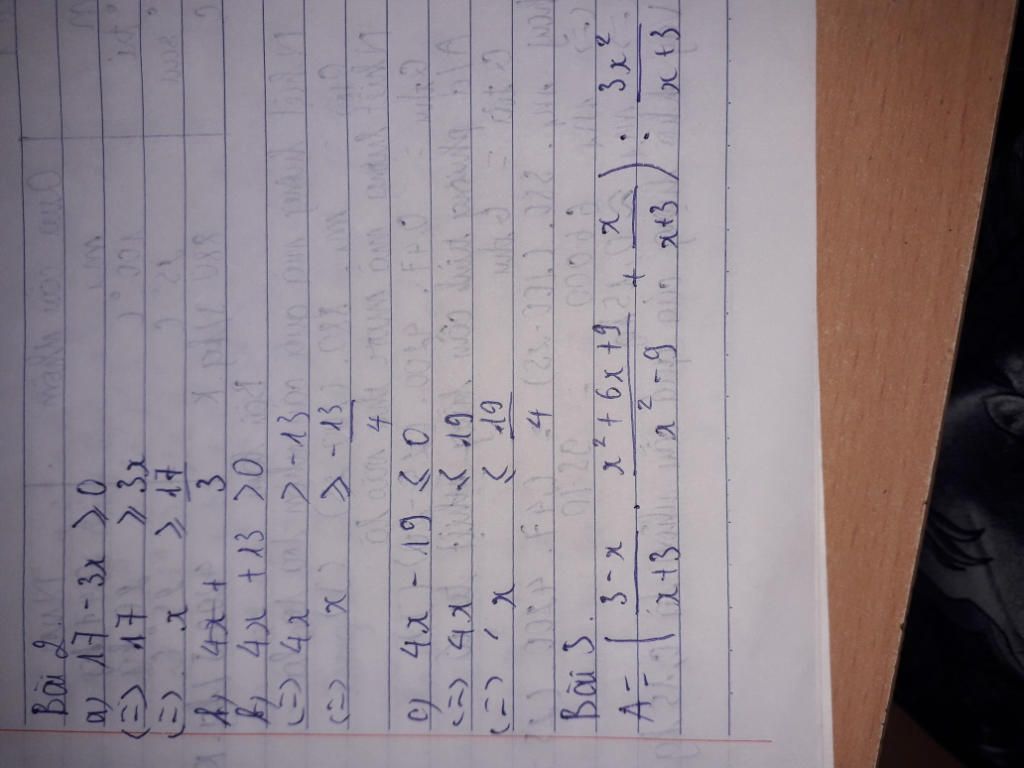 Bài 2.
a) 17 - 3x ⩾ 0
(=) 17 ⩾ 3x
(=) x ⩾ 17/3
b) 4x +
b) 4x + 13 > 0
(=) 4x > -13
(=) x > -13/4
c) 4x - 19 ⩽ 0
(=) 4x ⩽ 19
(=) x ⩽ 19/4
Bài 3.
A = ( (3 - x)/(x+3) . (x² + 6x + 9)/(x² - 9) + x/(x+3) ) : 3x²/(x+3)